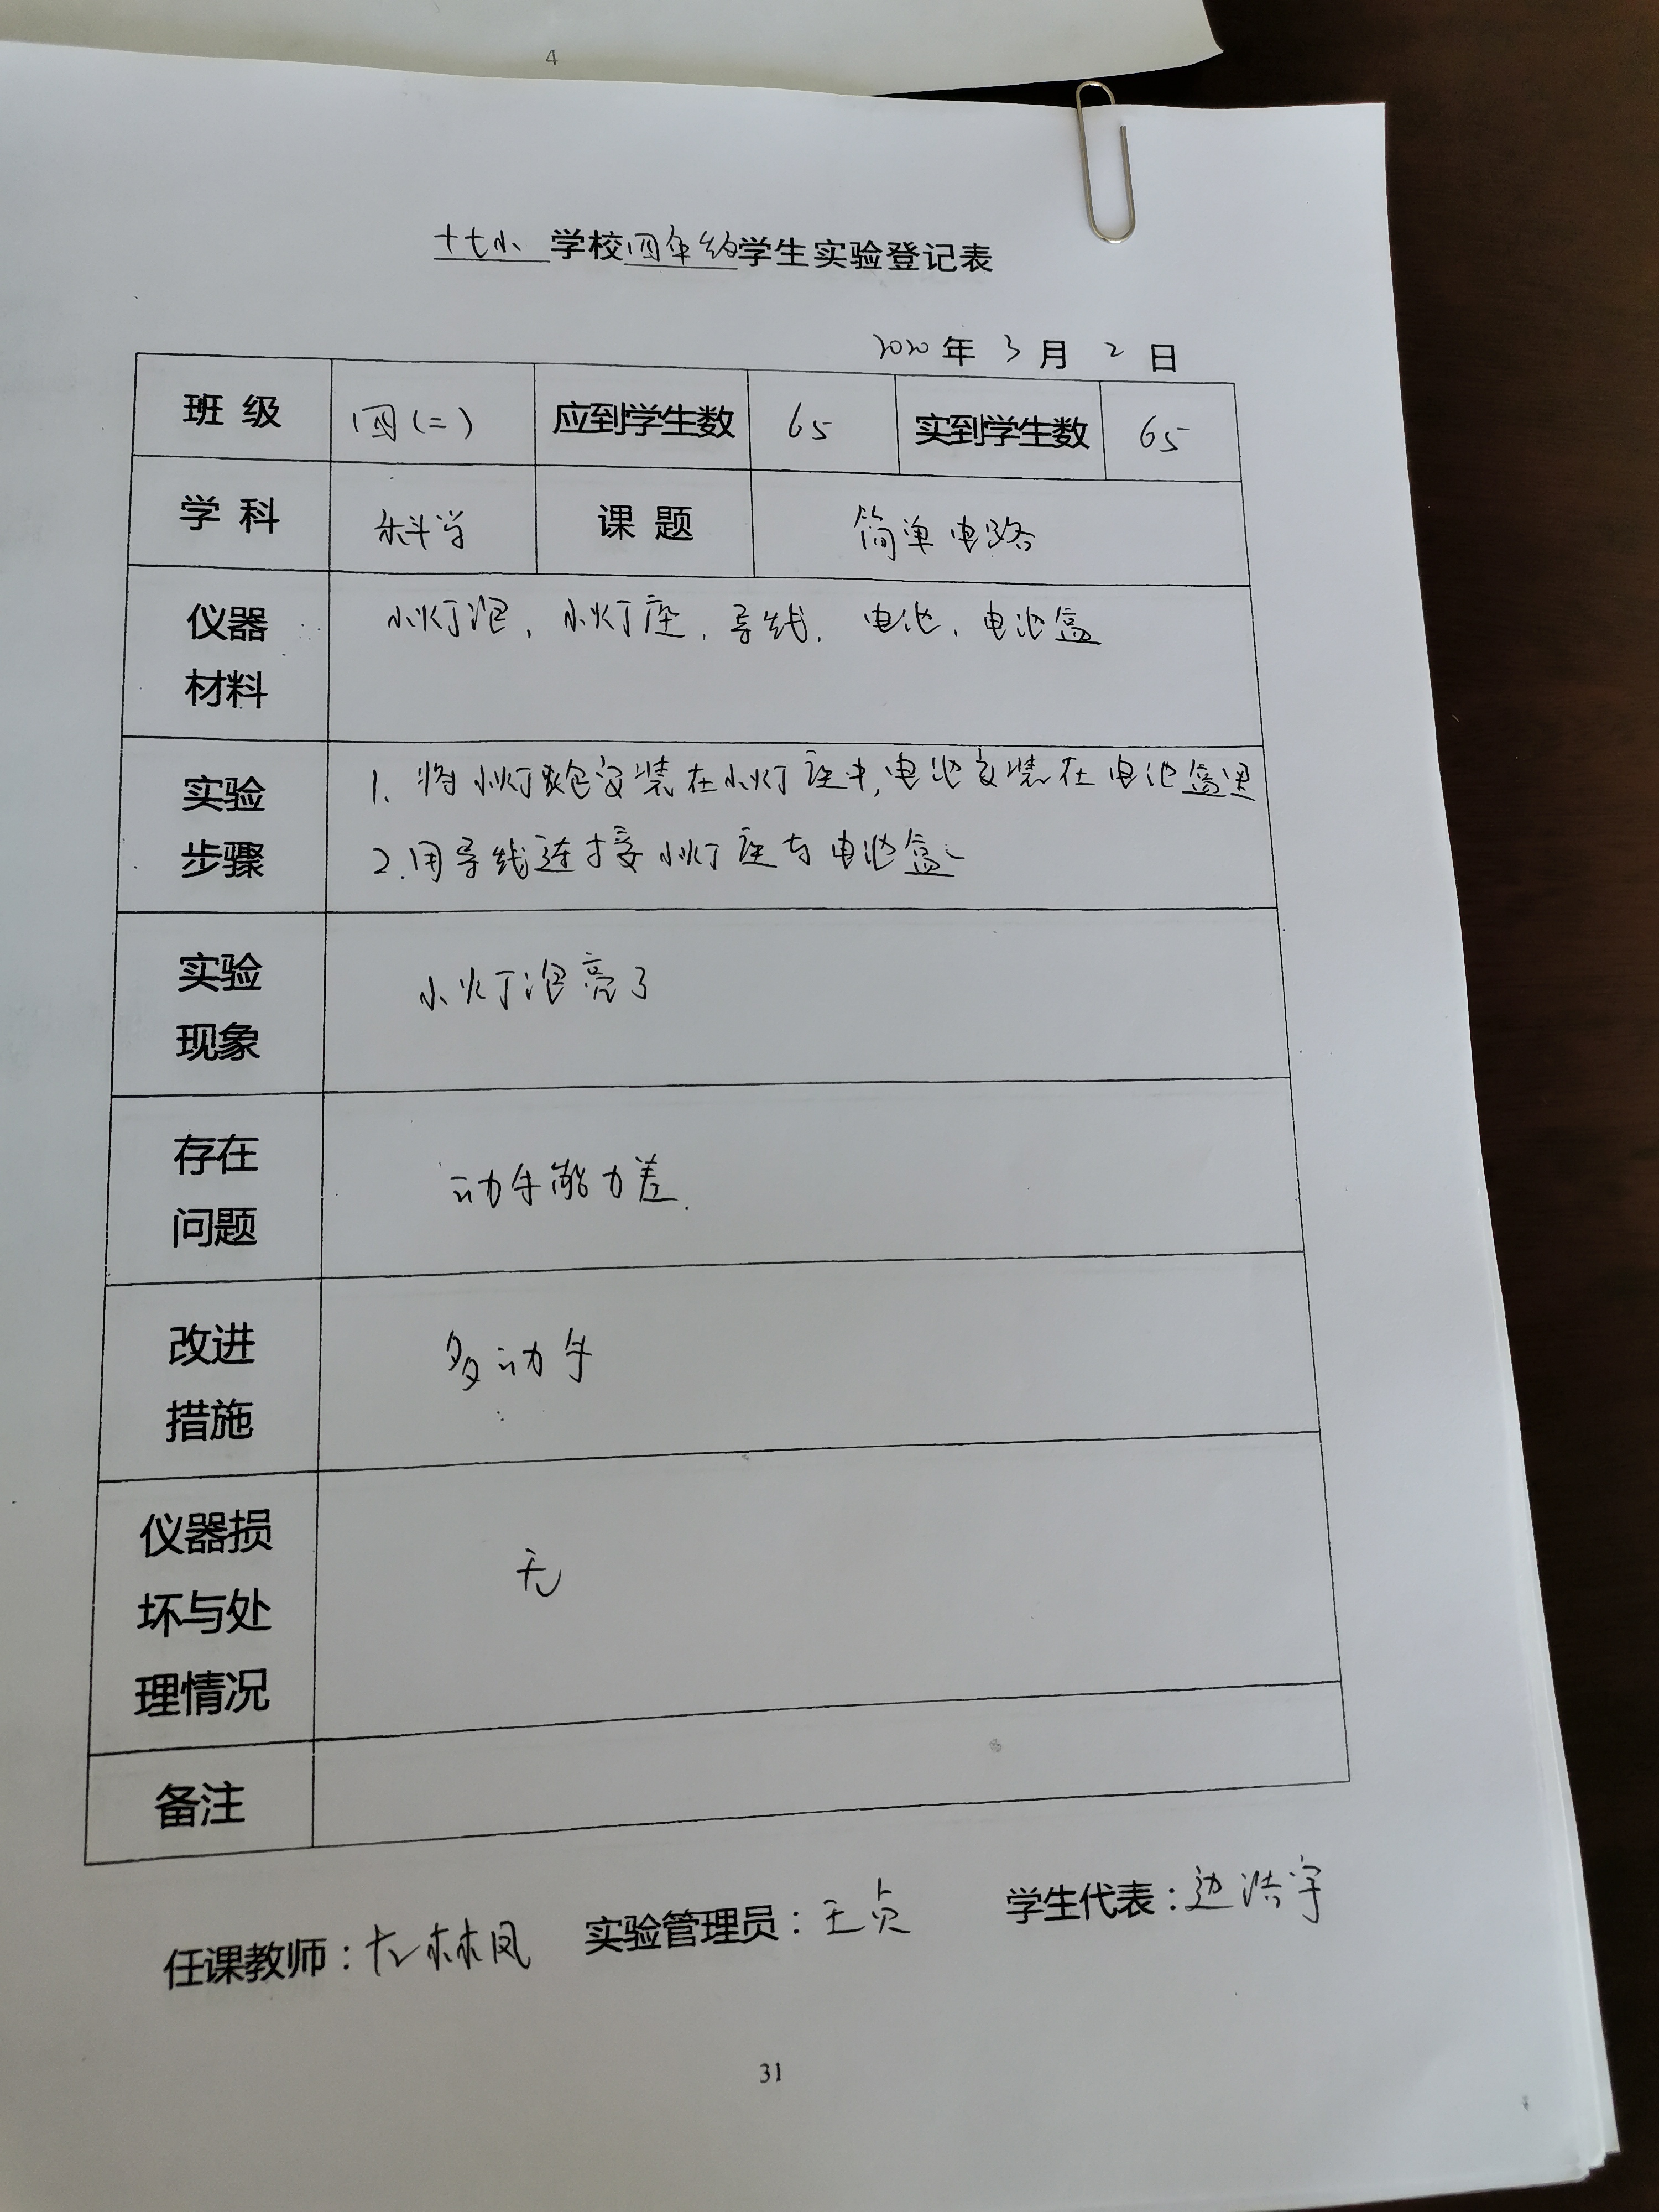 4
十七小 学校四年级学生实验登记表
2020年 3月 2日
班级 四(二) 应到学生数 65 实到学生数 65
学科 科学 课题 简单电路
仪器 小灯泡,小灯座,导线,电池,电池盒
材料
实验 1.将小灯炮安装在小灯座中,电池安装在电池盒里
步骤 2.用导线连接小灯座与电池盒
实验 小灯泡亮了
现象
存在 动手能力差.
问题
改进 多动手
措施
仪器损 无
坏与处
理情况
备注
任课教师: 林凤 实验管理员:王贞 学生代表:边浩宇
31